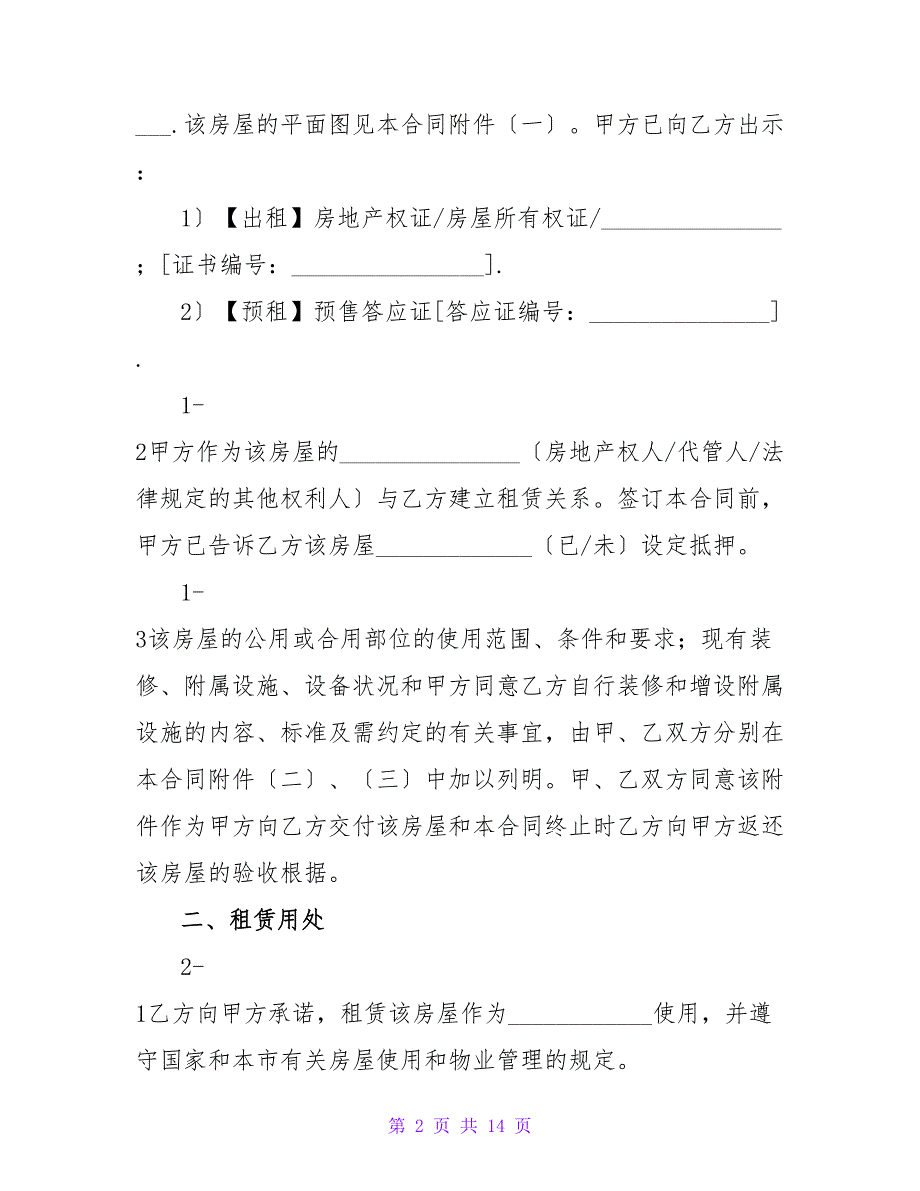 ___.该房屋的平面图见本合同附件〔一〕。甲方已向乙方出示
：
1〕【出租】房地产权证/房屋所有权证/_______________
；[证书编号：________________].
2〕【预租】预售答应证[答应证编号：_______________]
.
1-
2甲方作为该房屋的_______________〔房地产权人/代管人/法
律规定的其他权利人〕与乙方建立租赁关系。签订本合同前，
甲方已告诉乙方该房屋_____________〔已/未〕设定抵押。
1-
3该房屋的公用或合用部位的使用范围、条件和要求；现有装
修、附属设施、设备状况和甲方同意乙方自行装修和增设附属
设施的内容、标准及需约定的有关事宜，由甲、乙双方分别在
本合同附件〔二〕、〔三〕中加以列明。甲、乙双方同意该附
件作为甲方向乙方交付该房屋和本合同终止时乙方向甲方返还
该房屋的验收根据。
二、租赁用处
2-
1乙方向甲方承诺，租赁该房屋作为____________使用，并遵
守国家和本市有关房屋使用和物业管理的规定。
第 2 页 共 14 页